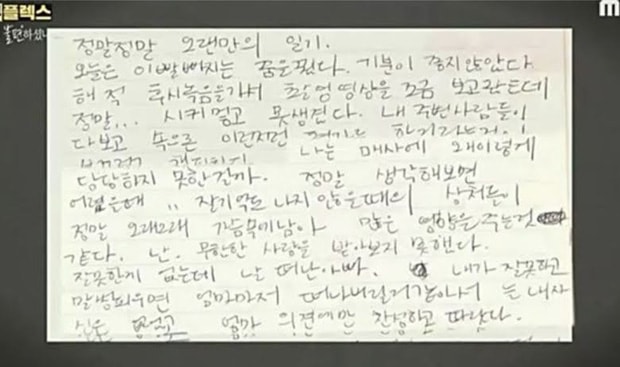 플렉스
M
정말정말 오랜만의 일기.
오늘은 이빨빠지는 꿈을꿨다. 기분이 좋지않았다
해적 후시녹음을가서 촬영영상을 조금 보고왔는데
정말... 시커멓고 못생겼다. 내 주변사람들이
다보고 속으론 이런저런 하거라는거.!
나는 매사에 왜이렇게
당당하지 못한걸까. 정말 생각해보면
어렸을때 .. 잘기억도 나지 않을때의 상처들이
정말 오래오래 가슴속에남아 많은 영향을 주는것
같다. 난. 무한한 사랑을 받아보지 못했다.
잘못한게 없는데 날 떠난아빠. 내가 잘못하고
말썽피우면 엄마마저 떠나버릴거같아서 는 내자
신은 엄마 의견에만 찬성하고 따랐다.